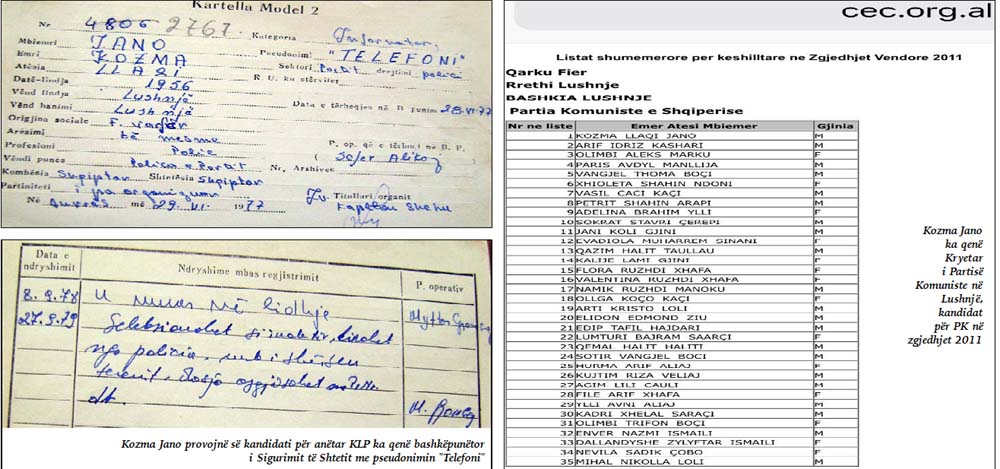 Kartella Model 2
Nr 4806 2767 Kategoria Informator,
Mbiemri JANO Pseudonimi "TELEFONI"
Emri KOZMA Sektori Portit, drejtimi policì
Atësia LLAQI R. U. ku stërvitet
Datë-lindja 1956
Vënd lindja Lushnjë Data e tërheqjes në B punim 28.VI.77
Vënd banimi Lushnjë
Origjina sociale F. varfër
Arësimi të mesme P. op. që e tërhoqi në B. P.
Profesioni Polic (Sofer Alikoj
Vëndi punës Polic ne e Portit Nr. Arkivor
Kombësia Shqiptar Shtetësia Shqiptar
Partiniteti i pa organizuar Titullari organit
Në Durrës më 29. VI. 1977 Kapllan Shehu
Data e ndryshimit
Ndryshime mbas regjistrimit
P. operativ
8.9.78 U muar në lidhje
27.9.79
nga policia
terenit, dosja asgjësohet
Kozma Jano provojnë së kandidati për anëtar KLP ka qenë bashkëpunëtor
i Sigurimit të Shtetit me pseudonimin "Telefoni"
cec.org.al
Listat shumemerore per keshilltare ne Zgjedhjet Vendore 2011
Qarku Fier
Rrethi Lushnje
BASHKIA LUSHNJE
Partia Komuniste e Shqiperise
Nr ne liste Emer Atesi Mbiemer Gjinia
1 KOZMA LLAQI JANO M
2 ARIF IDRIZ KASHARI M
3 OLIMBI ALEKS MARKU F
4 PARIS AVDYL MANLLIJA M
5 VANGJEL THOMA BOÇI M
6 XHIOLETA SHAHIN NDONI F
7 VASIL CACI KAÇI M
8 PETRIT SHAHIN ARAPI M
9 ADELINA BRAHIM YLLI F
10 SOKRAT STAVRI ÇEREPI M
11 JANI KOLI GJINI M
12 EVADIOLA MUHARREM SINANI F
13 QAZIM HALIT TAULLAU M
14 KALIJE LAMI GJINI F
15 FLORA RUZHDI XHAFA F
16 VALENTINA RUZHDI XHAFA F
17 NAMIK RUZHDI MANOKU M
18 OLLGA KOÇO KAÇI F
19 ARTI KRISTO LOLI M
20 ELIDON EDMOND ZIU M
21 EDIP TAFIL HAJDARI M
22 LUMTURI BAJRAM SAARÇI F
23 QEMAL HALIT HALITI M
24 SOTIR VANGJEL BOCI M
25 HURMA ARIF ALIAJ F
26 KUJTIM RIZA VELIAJ M
27 AGIM LILI CAULI M
28 FILE ARIF XHAFA F
29 YLLI AVNI ALIAJ M
30 KADRI XHELAL SARAÇI M
31 OLIMBI TRIFON BOÇI F
32 ENVER NAZMI ISMAILI M
33 DALLANDYSHE ZYLYFTAR ISMAILI F
34 NEVILA SADIK ÇOBO F
35 MIHAL NIKOLLA LOLI M
Kozma Jano
ka qenë
Kryetar
i Partisë
Komuniste në
Lushnjë,
kandidat
për PK në
zgjedhjet 2011